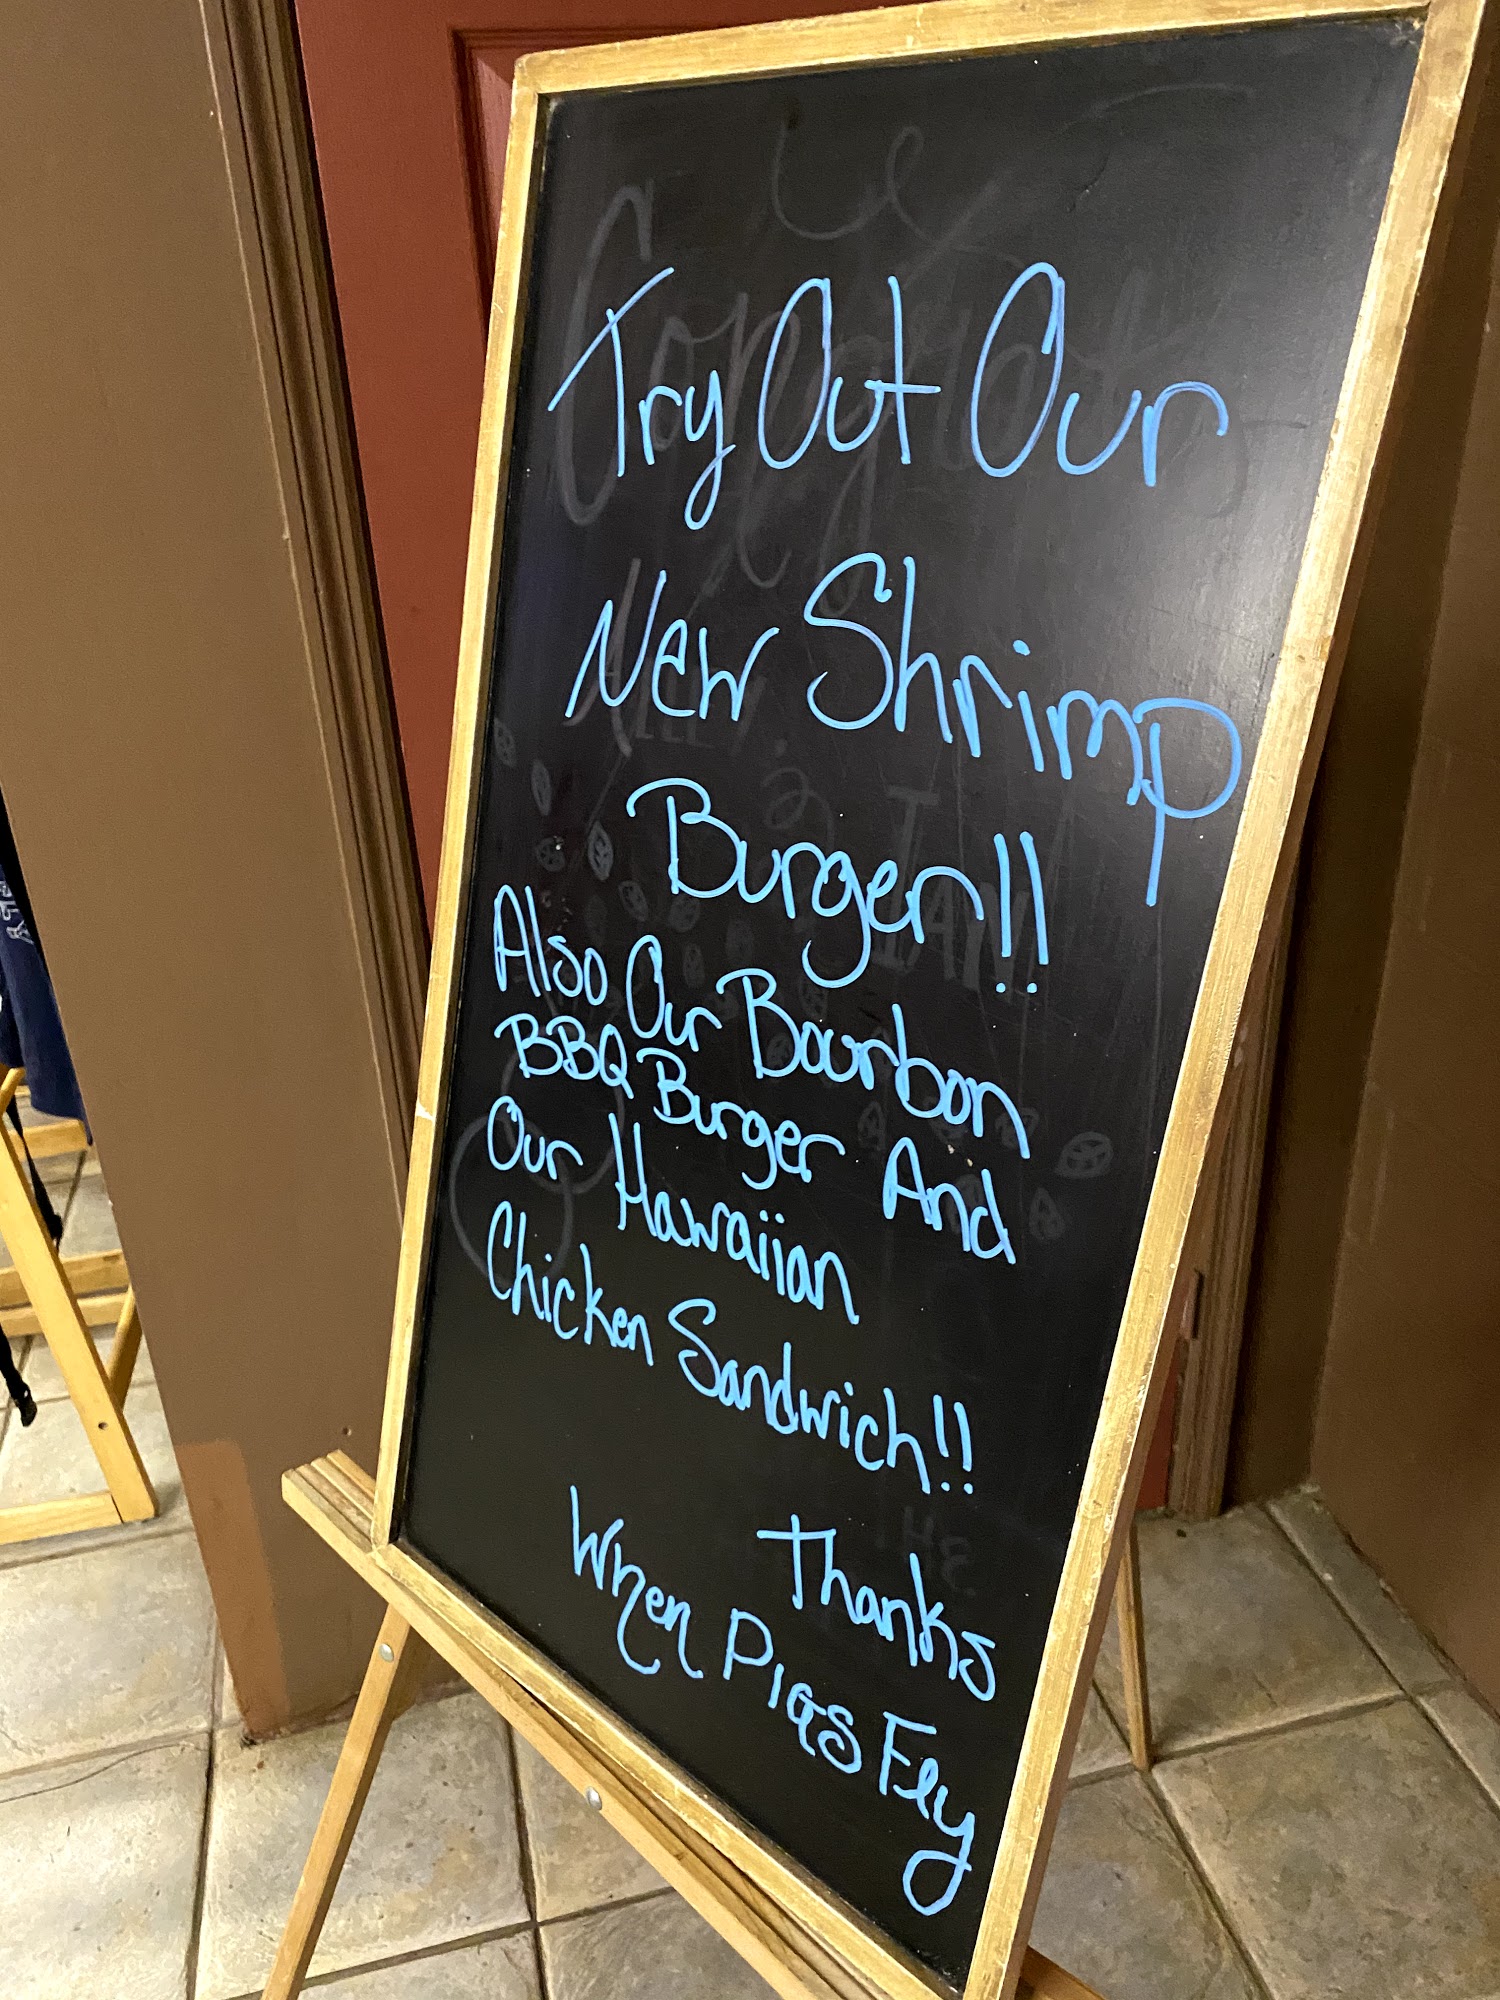 Try Out Our
New Shrimp
Burger!!
Also Our Bourbon
BBQ Burger And
Our Hawaiian
Chicken Sandwich!!
Thanks
When Pigs Fly